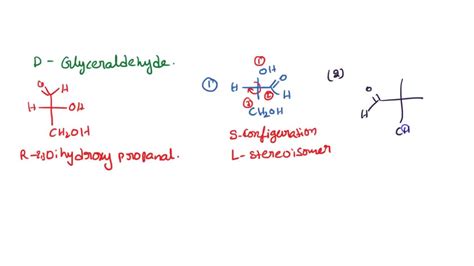 D - Glyceraldehyde.
O H
H OH
CH₂OH
R-2,3 Dihydroxy propanal.
①
OH
① H O
③ ② H
CH₂OH
S-configuration
L-stereoisomer
(2)
O
H
CH